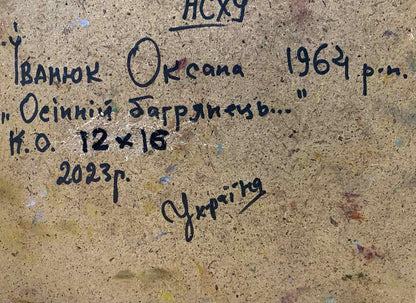 НСХУ
Іванюк Оксана 1964 р.н.
„Осінній багрянець..."
К.О. 12 х 16
2023р.
Україна